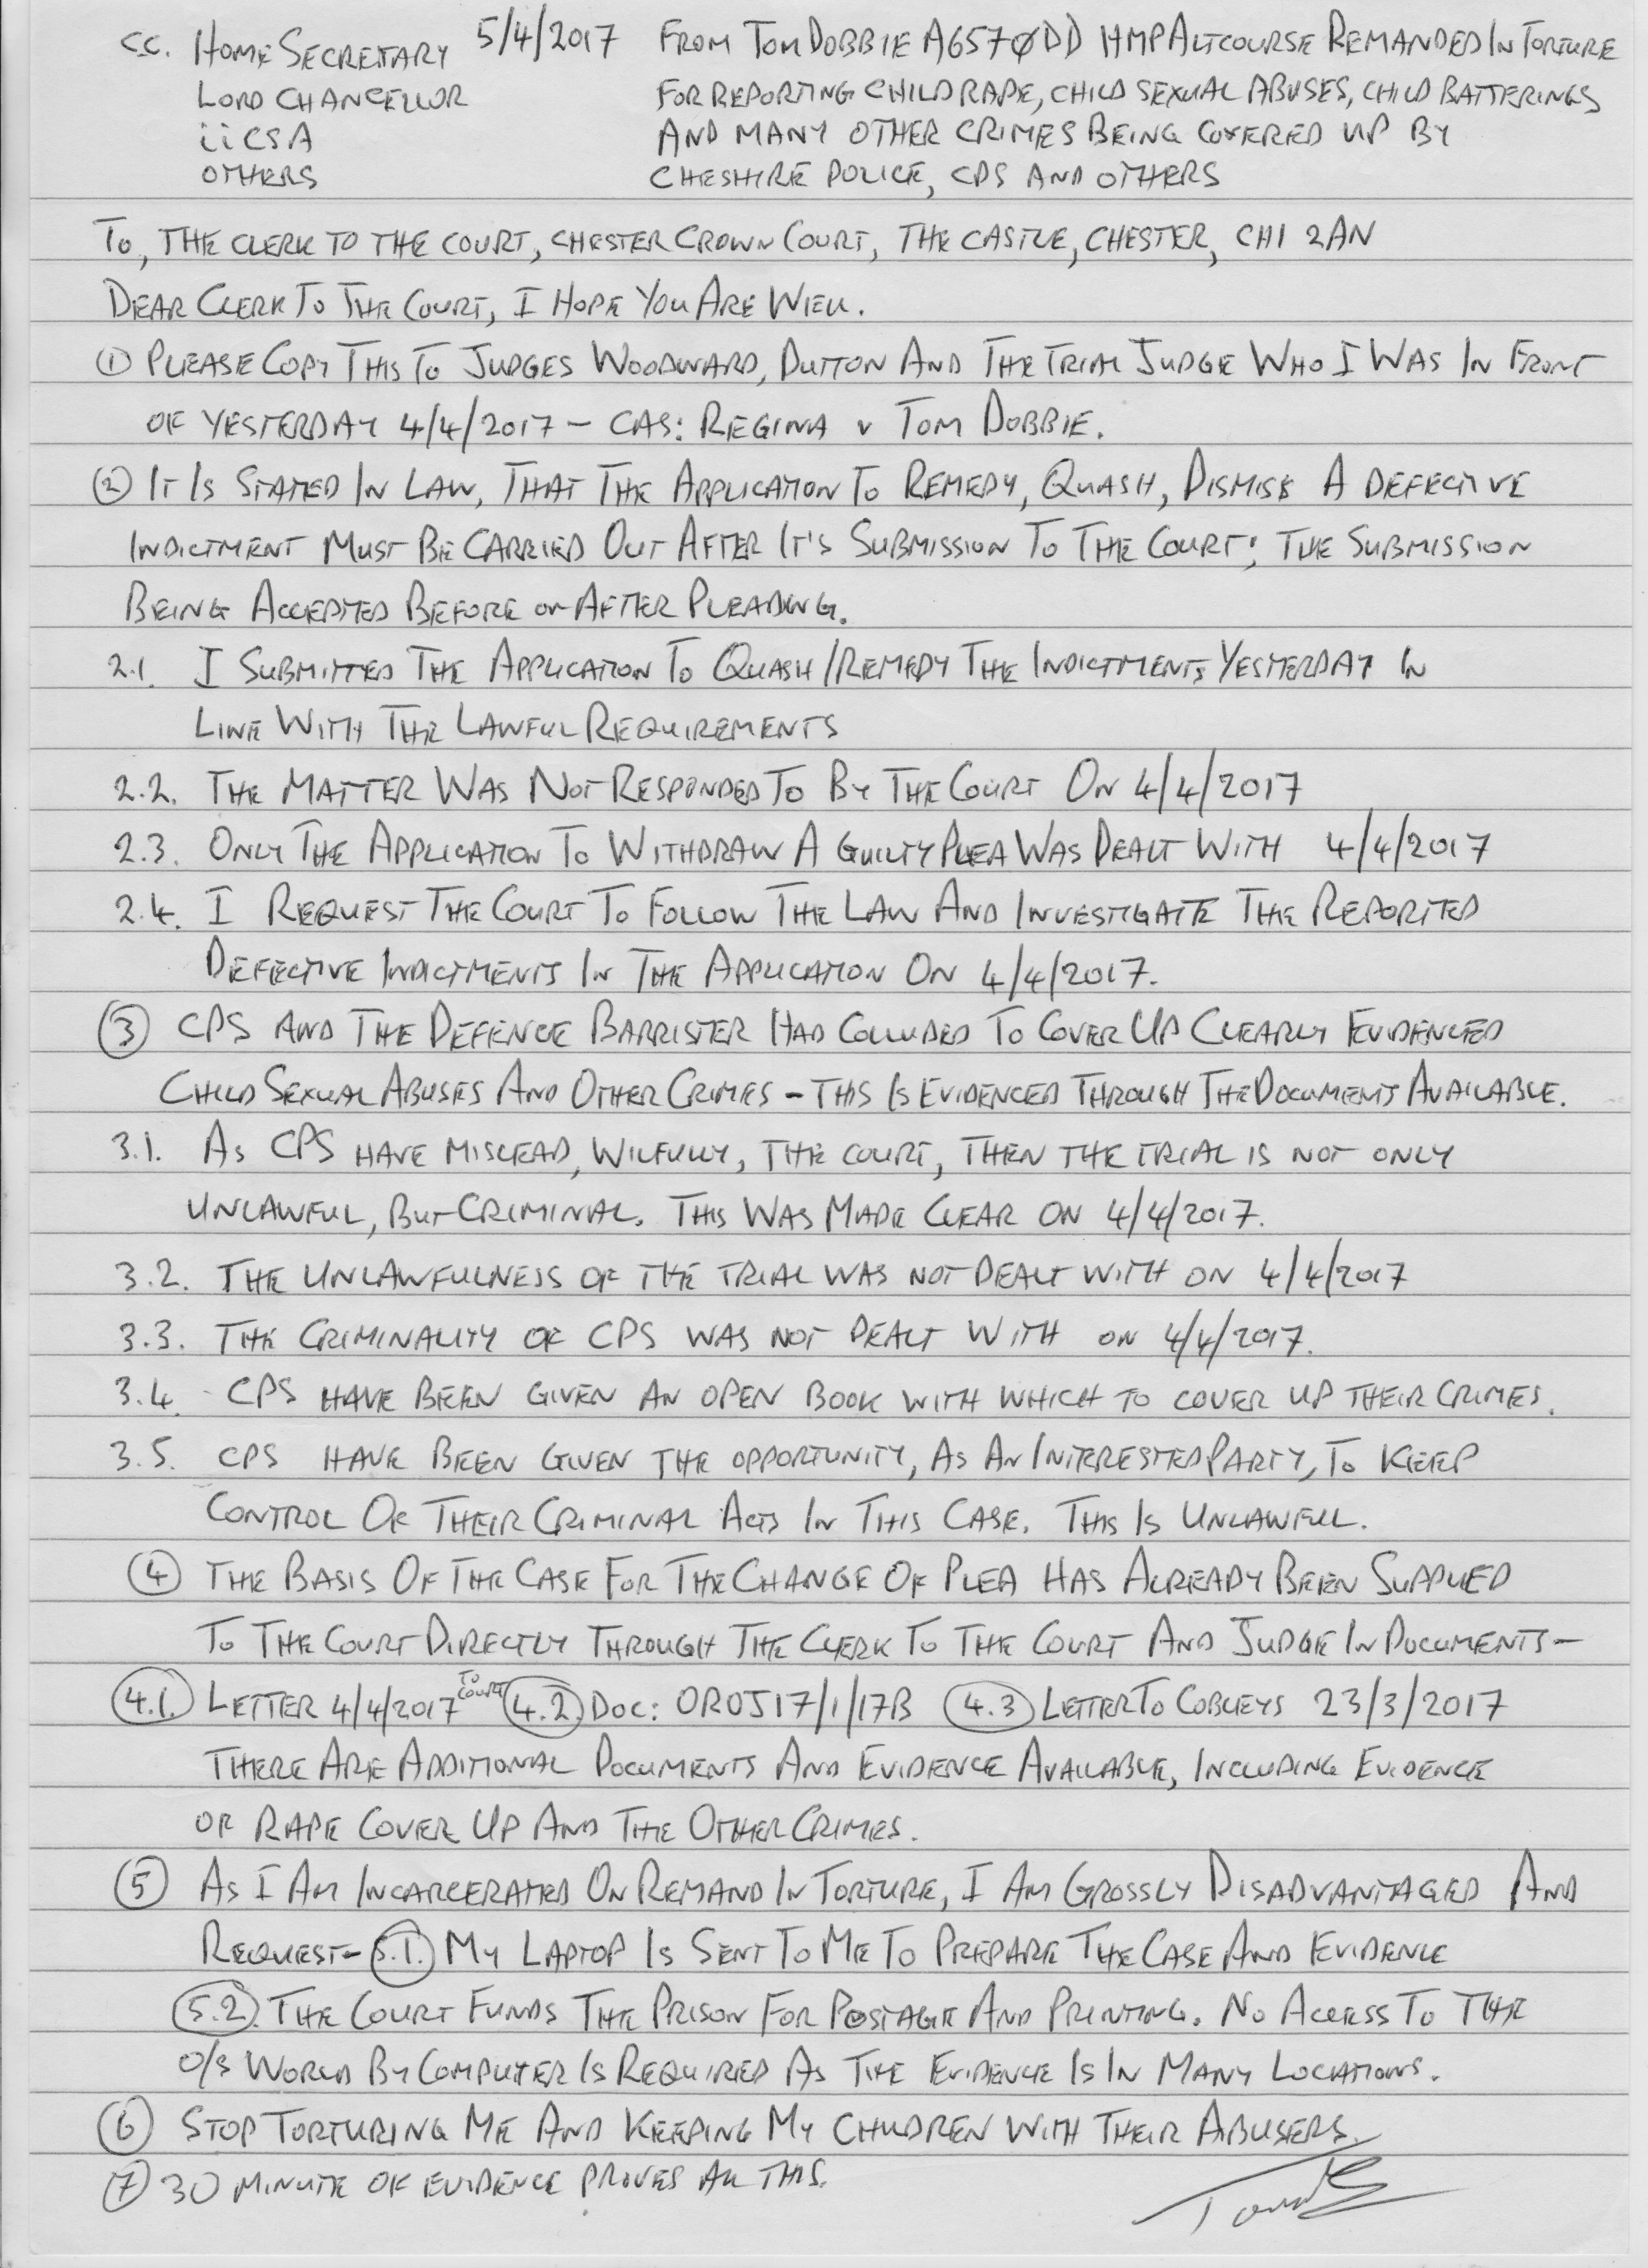 C.C. HOME SECRETARY 5/4/2017 FROM TOM DOBBIE A6570DD HMP ALTCOURSE REMANDED IN TORTURE
LORD CHANCELLOR FOR REPORTING CHILD RAPE, CHILD SEXUAL ABUSES, CHILD BATTERINGS
iiCSA AND MANY OTHER CRIMES BEING COVERED UP BY
OTHERS CHESHIRE POLICE, CPS AND OTHERS
TO, THE CLERK TO THE COURT, CHESTER CROWN COURT, THE CASTLE, CHESTER, CH1 2AN
DEAR CLERK TO THE COURT, I HOPE YOU ARE WELL.
① PLEASE COPY THIS TO JUDGES WOODWARD, DUTTON AND THE TRIAL JUDGE WHO I WAS IN FRONT
OF YESTERDAY 4/4/2017 – CAS: REGINA v TOM DOBBIE.
② IT IS STATED IN LAW, THAT THE APPLICATION TO REMEDY, QUASH, DISMISS A DEFECTIVE
INDICTMENT MUST BE CARRIED OUT AFTER IT'S SUBMISSION TO THE COURT; THE SUBMISSION
BEING ACCEPTED BEFORE OR AFTER PLEADING.
2.1. I SUBMITTED THE APPLICATION TO QUASH/REMEDY THE INDICTMENTS YESTERDAY IN
LINE WITH THE LAWFUL REQUIREMENTS
2.2. THE MATTER WAS NOT RESPONDED TO BY THE COURT ON 4/4/2017
2.3. ONLY THE APPLICATION TO WITHDRAW A GUILTY PLEA WAS DEALT WITH 4/4/2017
2.4. I REQUEST THE COURT TO FOLLOW THE LAW AND INVESTIGATE THE REPORTED
DEFECTIVE INDICTMENTS IN THE APPLICATION ON 4/4/2017.
③ CPS AND THE DEFENCE BARRISTER HAD COLLUDED TO COVER UP CLEARLY EVIDENCED
CHILD SEXUAL ABUSES AND OTHER CRIMES – THIS IS EVIDENCED THROUGH THE DOCUMENTS AVAILABLE.
3.1. AS CPS HAVE MISLEAD, WILFULLY, THE COURT, THEN THE TRIAL IS NOT ONLY
UNLAWFUL, BUT CRIMINAL. THIS WAS MADE CLEAR ON 4/4/2017.
3.2. THE UNLAWFULNESS OF THE TRIAL WAS NOT DEALT WITH ON 4/4/2017
3.3. THE CRIMINALITY OF CPS WAS NOT DEALT WITH ON 4/4/2017.
3.4. CPS HAVE BEEN GIVEN AN OPEN BOOK WITH WHICH TO COVER UP THEIR CRIMES.
3.5. CPS HAVE BEEN GIVEN THE OPPORTUNITY, AS AN INTERRESTED PARTY, TO KEEP
CONTROL OF THEIR CRIMINAL ACTS IN THIS CASE. THIS IS UNLAWFUL.
④ THE BASIS OF THE CASE FOR THE CHANGE OF PLEA HAS ALREADY BEEN SUPPLIED
TO THE COURT DIRECTLY THROUGH THE CLERK TO THE COURT AND JUDGE IN DOCUMENTS –
4.1. LETTER 4/4/2017 TO COURT 4.2. DOC: OROJ17/1/17B 4.3 LETTER TO COBLEYS 23/3/2017
THERE ARE ADDITIONAL DOCUMENTS AND EVIDENCE AVAILABLE, INCLUDING EVIDENCE
OF RAPE COVER UP AND THE OTHER CRIMES.
⑤ AS I AM INCARCERATED ON REMAND IN TORTURE, I AM GROSSLY DISADVANTAGED AND
REQUEST – 5.1. MY LAPTOP IS SENT TO ME TO PREPARE THE CASE AND EVIDENCE
5.2. THE COURT FUNDS THE PRISON FOR POSTAGE AND PRINTING. NO ACCESS TO THE
O/S WORLD BY COMPUTER IS REQUIRED AS THE EVIDENCE IS IN MANY LOCATIONS.
⑥ STOP TORTURING ME AND KEEPING MY CHILDREN WITH THEIR ABUSERS.
⑦ 30 MINUTE OF EVIDENCE PROVES ALL THIS.